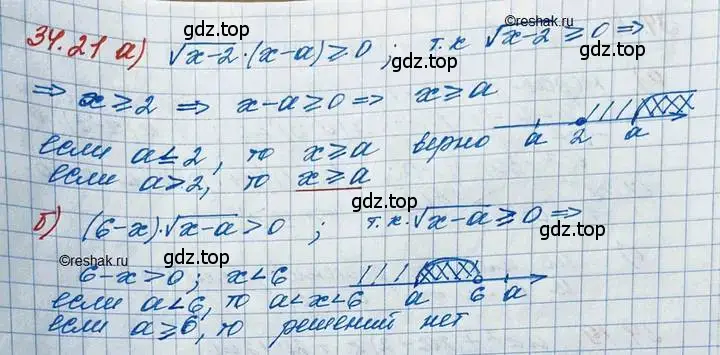 34.21 а) √x-2 · (x-a) ≥ 0 ; т.к √x-2 ≥ 0 ⇒
⇒ x ≥ 2 ⇒ x-a ≥ 0 ⇒ x ≥ a
если a ≤ 2, то x ≥ a верно a 2 a
если a > 2, то x ≥ a
б) (6-x)·√x-a > 0 ; т.к. √x-a ≥ 0 ⇒
6-x > 0; x < 6 a 6 a
если a < 6, то a < x < 6
если a ≥ 6, то решений нет
©reshak.ru
gdz.top
gdz.top
©reshak.ru
gdz.top
gdz.top
gdz.top
gdz.top
©reshak.ru
gdz.top
gdz.top